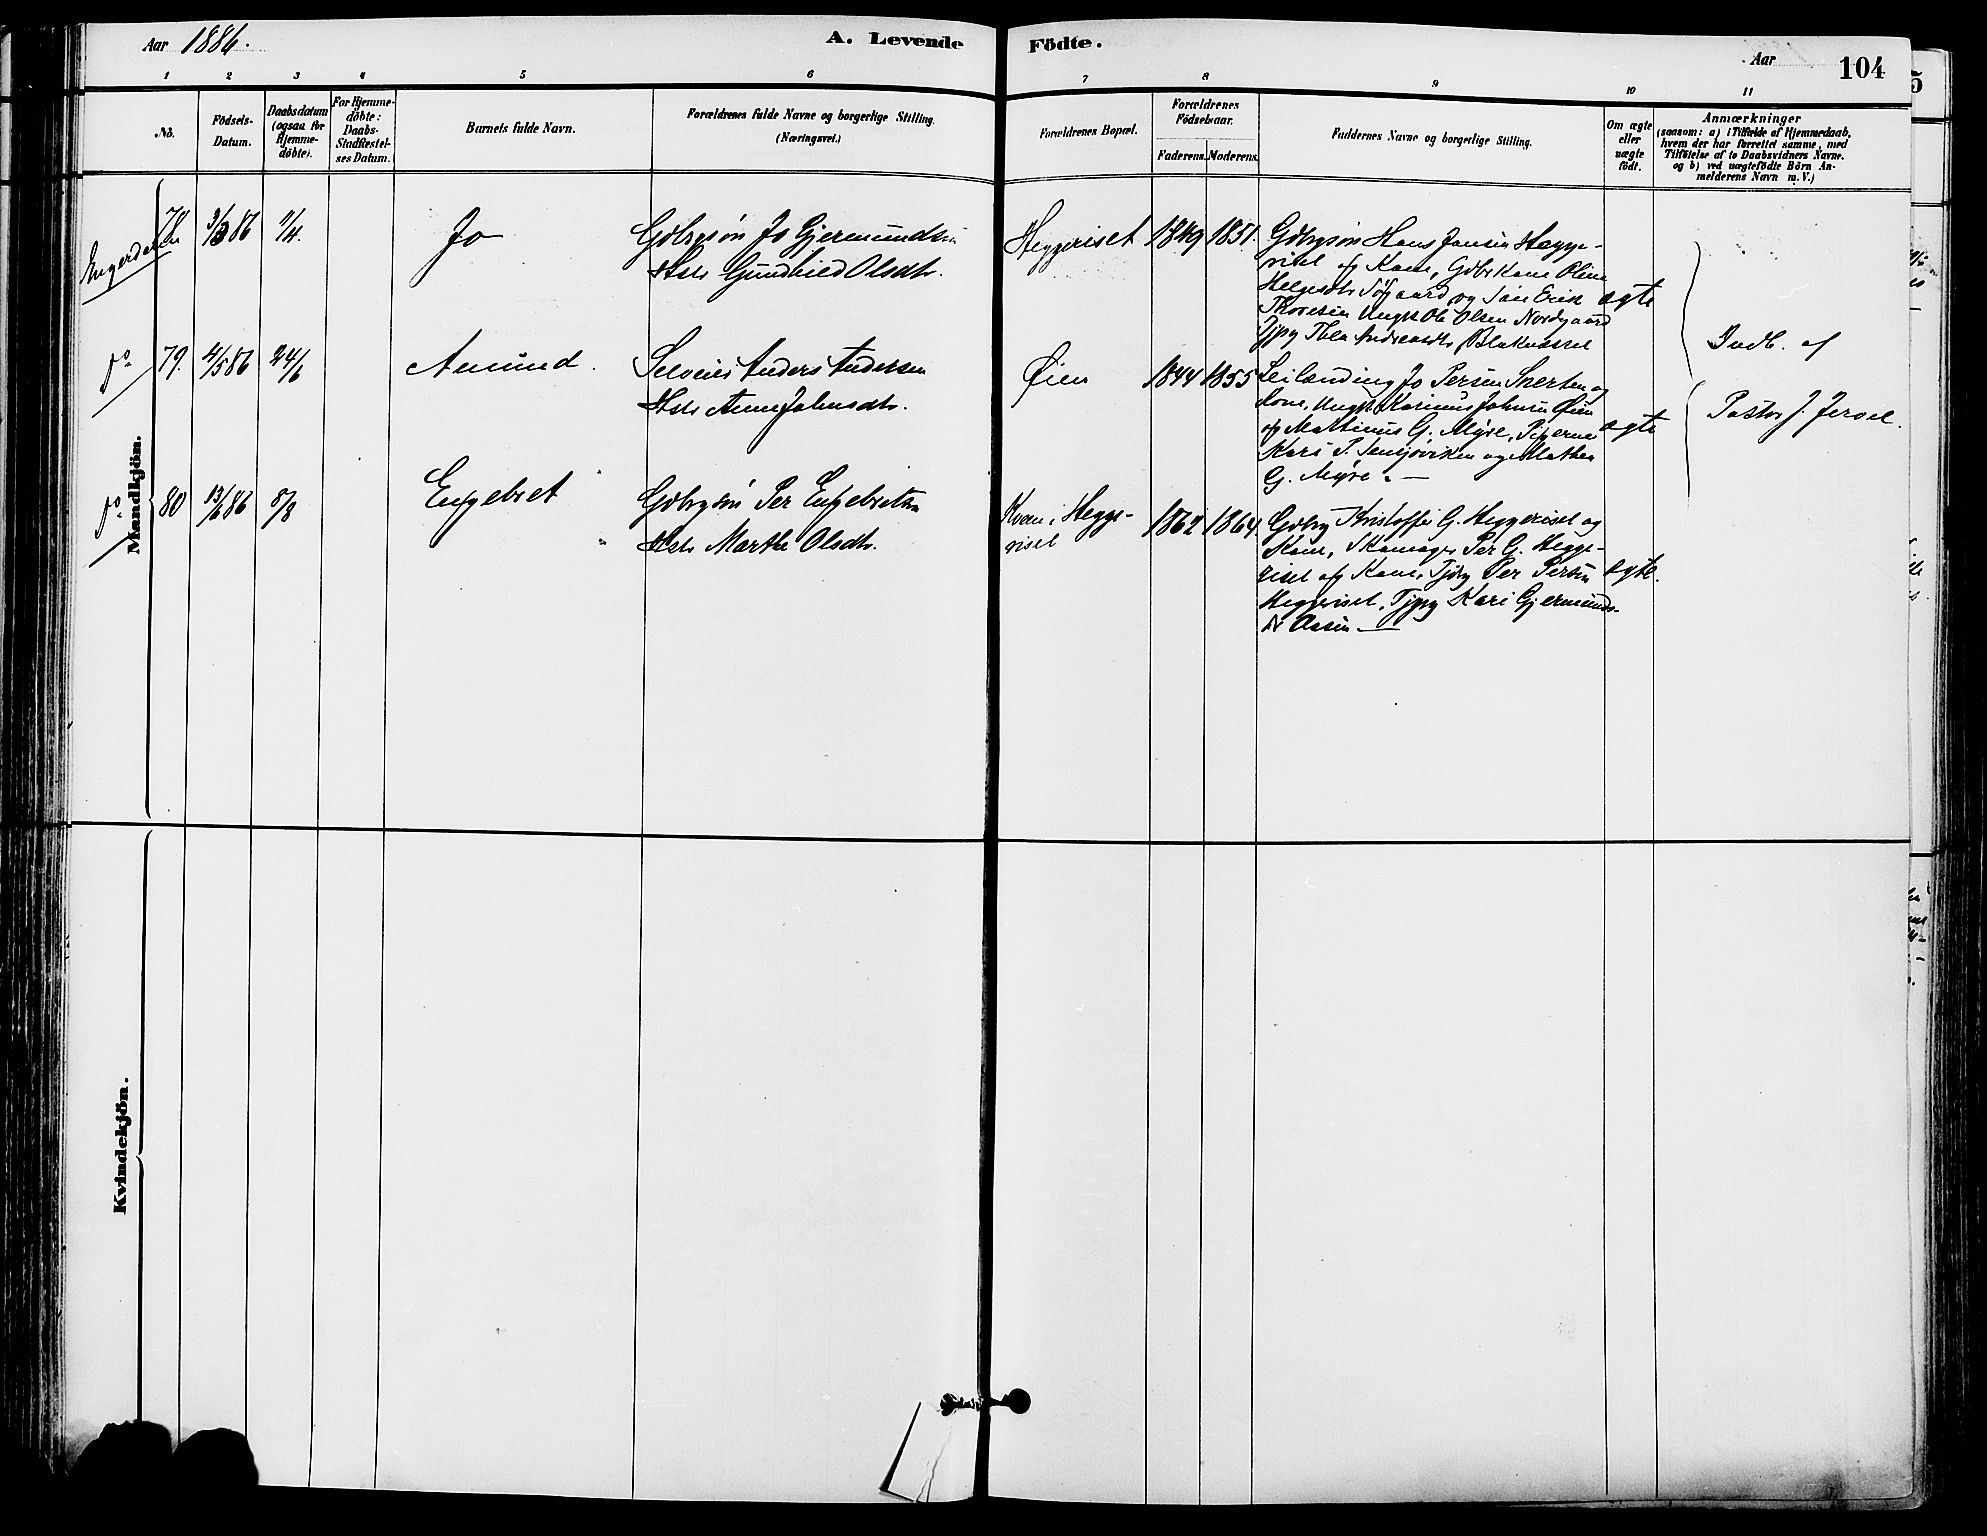 Aar 1886.
A. Levende Födte.
Aar
104
1 2 3 4 5 6 7 8 9 10 11
No.
Födsels-Datum.
Daabsdatum (ogsaa for Hjemme-döbte).
For Hjemme-döbte: Daabs-Stadfæstel-ses Datum.
Barnets fulde Navn.
Forældrenes fulde Navne og borgerlige Stilling. (Næringsvei.)
Forældrenes Bopæl.
Forældrenes Födselsaar.
Faderens. Moderens.
Faddernes Navne og borgerlige Stilling.
Om ægte eller uægte födt.
Anmærkninger
(saasom: a) i Tilfælde af Hjemmedaab,
hvem der har forrettet samme, med
Tilföielse af to Daabsvidners Navne.
og b) ved uægtefödte Börn An-
melderens Navn m. V.)
Mandkjön.
Engerdalen 78 3/3 86 1/4. Jo
Gdbrgsön Jo Gjermundsen
Hstr Gundhild Olsdtr.
Heggeriset 1849 1851.
Gdbrgsön Hans Jonsen Hegge-
riset og Kone, Gdbr Kone Oline
Helgesdtr Söfgaard og Erik
Thoresen Ungk Ole Olsen Nordgaard
Andreasdtr
ægte
do 79. 4/5 86 24/6 Amund.
Selveier Anders Andersen
Hstr Anne Johnsdtr.
Öien 1844 1855
Leilænding Jo Persen Snerten og
Kone, Ungk Karinus Johnsen Öien
og Martinus G. Myre, Pigerne
Kari P. og Mathea
G. Myre. —
ægte
Indb. af
Pastor J. Jervel.
do 80 13/6 86 8/8 Engebret
Gdbrgsön Per Engebretsen
Hstr Marthe Olsdtr.
Kvæn i Hegge-
riset
1862 1864.
Gdbrg Kristoffer G. Heggeriset og
Kone, Skomager Per G. Hegge-
riset og Kone, Per Persen
Heggeriset, Kari Gjermunds-
dtr Aasen —
ægte.
Kvindekjön.